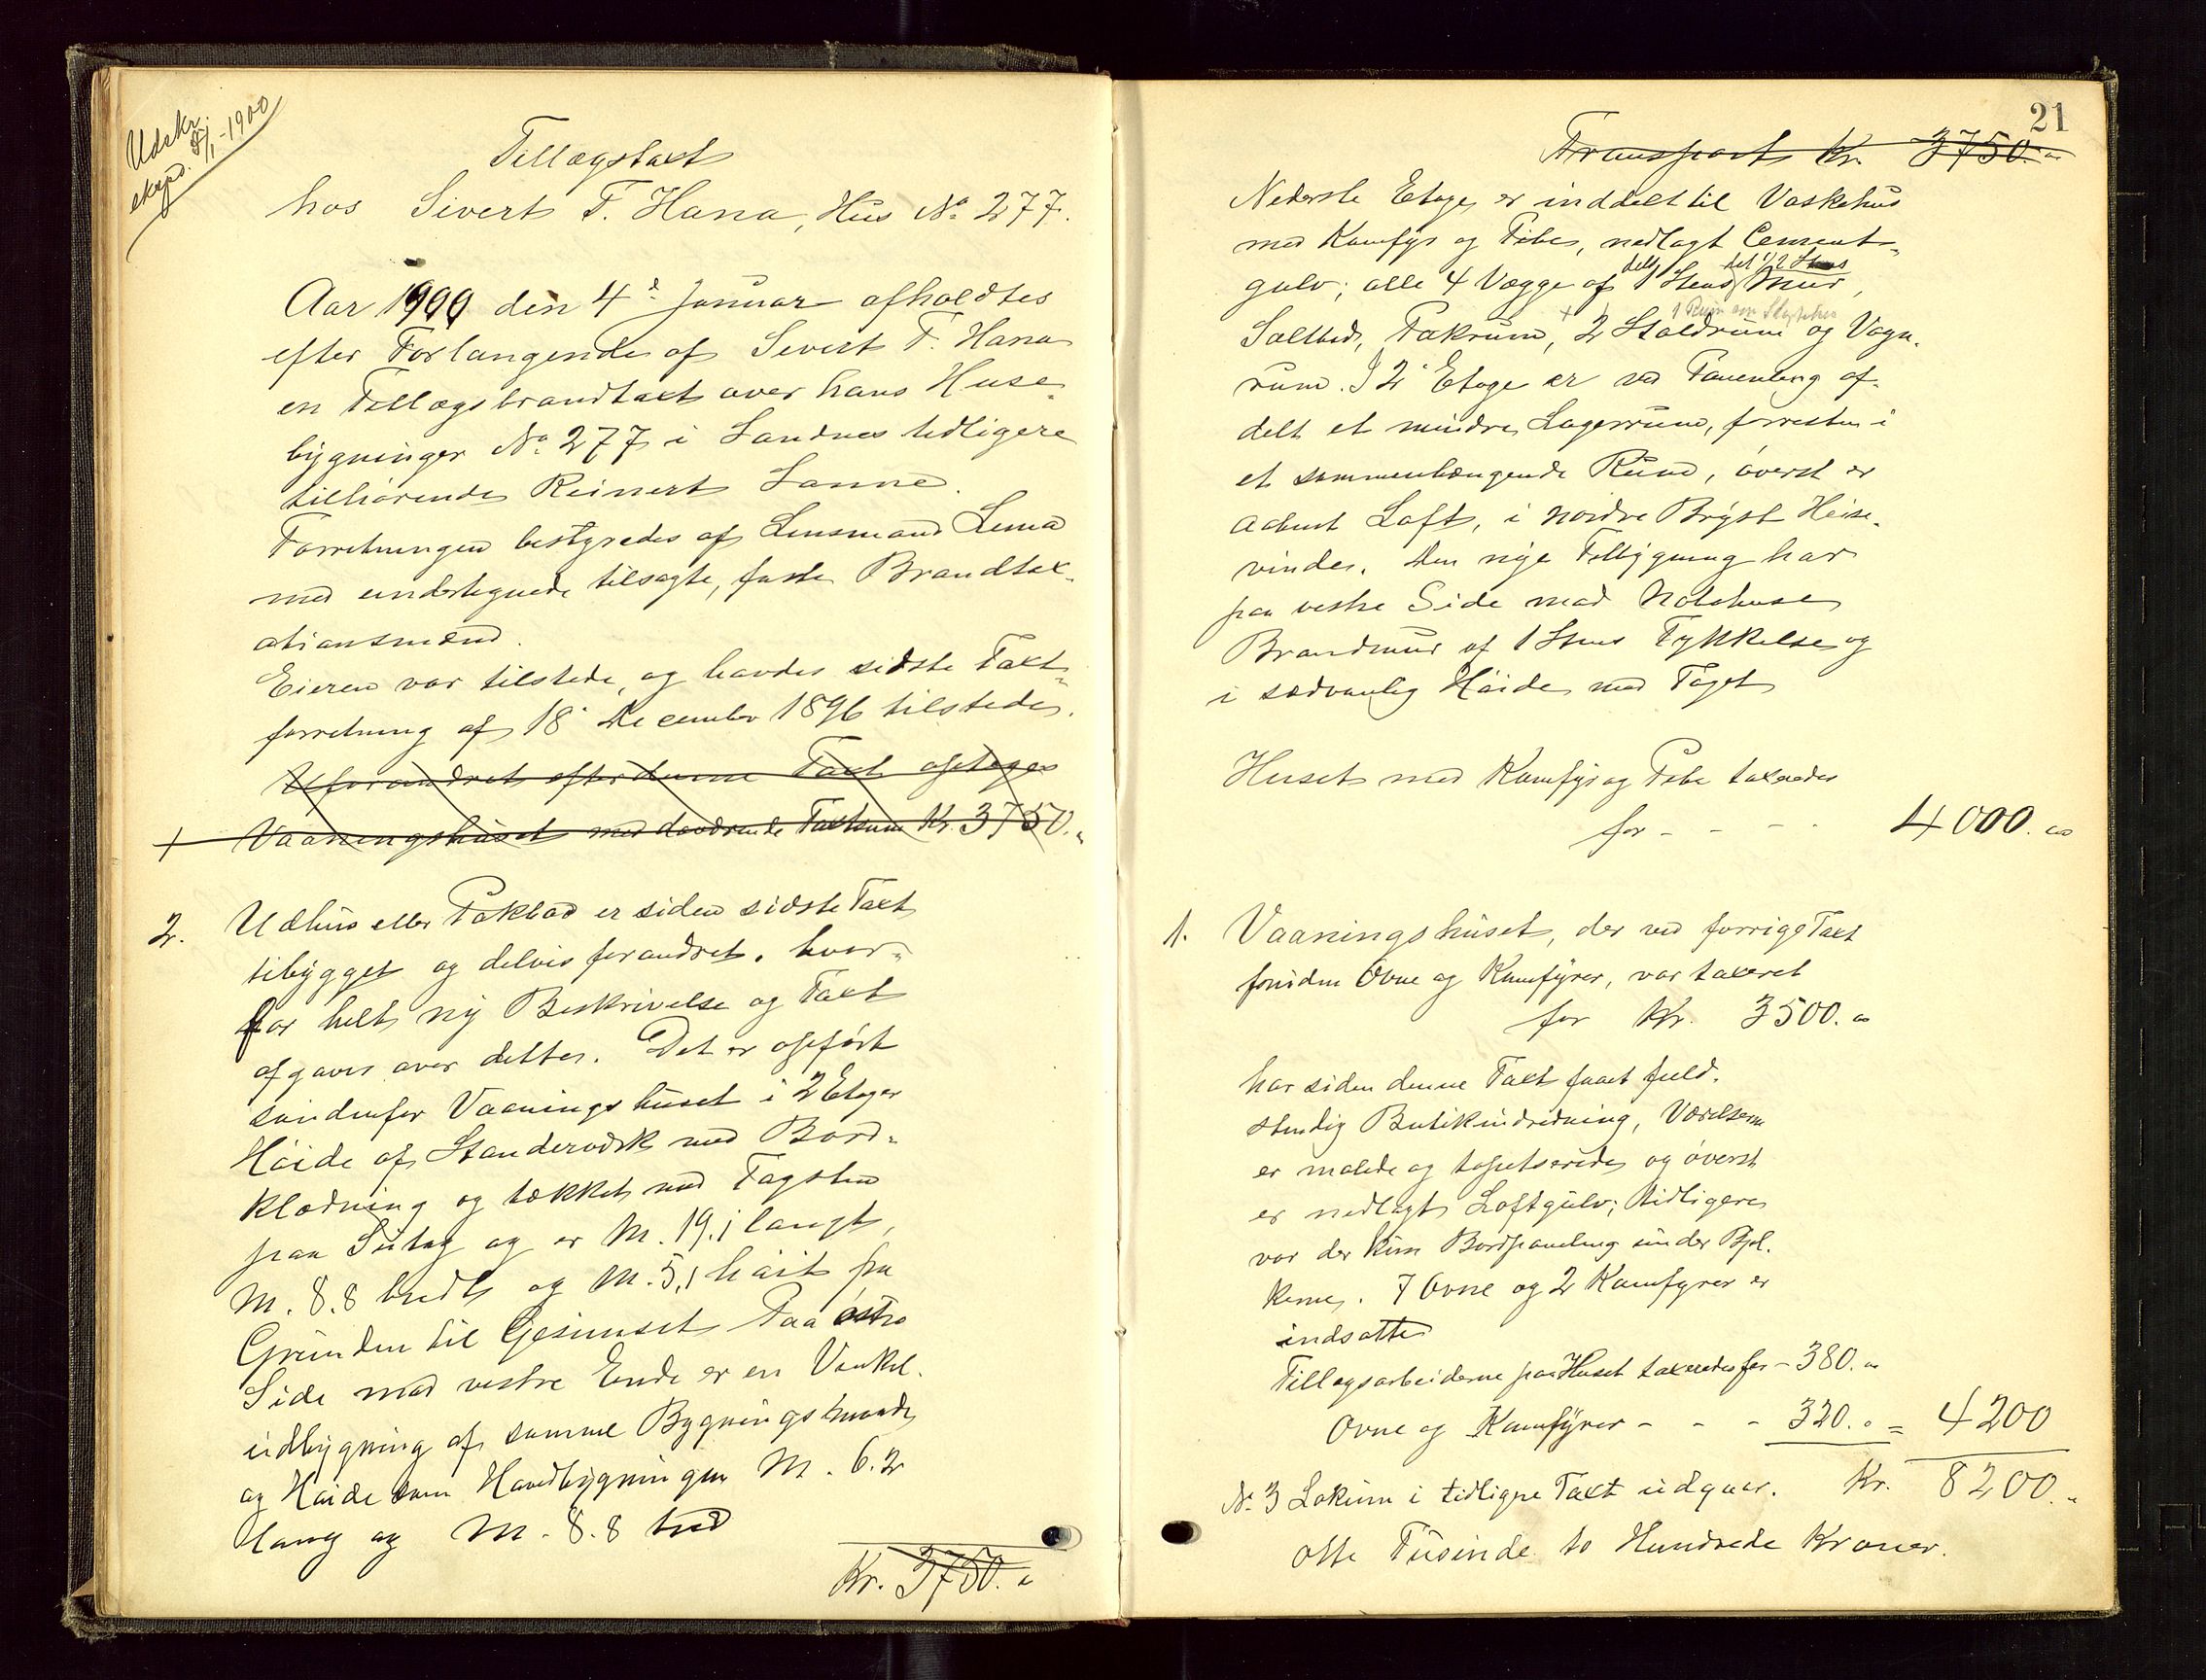 Udskr.
eksped. 8/1-1900
Tillægstaxt
hos Sivert T. Hana, Hus No 277.
Aar 1900 den 4de Januar afholdtes
efter Forlangende af Sivert T. Hana
en Tillægsbrandtaxt over hans Huse-
bygninger No 277 i Sandnes tidligere
tilhørende Reinert Sanne.
Forretningen bestyredes af Lensmand Lima
med undertegnede tilsagte, faste Brandtax-
ationsmænd.
Eieren var tilstede, og havdes sidste Taxt-
forretning af 18' December 1896 tilstede.
Uforandret efter denne Taxt opføges
+ Vaaningshuset med daværende Taxtsum Kr. 3750. "
2. Udhus eller Pakbod er siden sidste Taxt
tilbygget og delvis forandret, hvor-
for helt ny Beskrivelse og Taxt
afgaves over dette. Det er opført
søndenfor Vaaningshuset i 2 Etager
Høide af Standerværk med Bord-
klædning og tækket med Tagsten
paa Sutag og er M. 19,1 langt,
M. 8.8 bredt og M. 5,1 høit fra
Grunden til Gesimset Paa østre
Side mod vestre Ende er en Vinkel-
udbygning af samme Bygningsmaade
og Høide som Hovedbygningen M. 6.2
lang og M. 8.8 bred
Kr. 3750. "
21
Transport Kr. 3750. "
Nederste Etage er inddelt til Vaskehus
med Kamfyr og Pibe, nedlagt Cement-
gulv; alle 4 Vægge af dels 1 Stens del 1/2 Stens Mur,
Saltbod, Pakrum, + 2 Staldrum 1 Rum som Slagtehus og Vogn-
rum. I 2' Etage er ved Paneling af-
delt et mindre Lagerrum, forresten i
et sammenhængende Rum, øverst er
aabent Loft, i nordre Bryst Heise-
vinde. Den nye Tilbygning har
paa vestre Side mod Nabohuse
Brandmur af 1 Stens Tykkelse og
i sædvanlig Høide med Taget
Huset med Kamfyr og Pibe taxeredes
for - - - - 4000. "
1. Vaaningshuset, der ved forrige Taxt
foruden Ovne og Kamfyrer, var taxeret
for Kr. 3500. "
har siden denne Taxt faaet fuld-
stændig Butikindredning, Værelserne
er malede og tapetserede og øverst
er nedlagt Loftgulv; tidligere
var der kun Bordpaneling under Bjel-
kerne. 7 Ovne og 2 Kamfyrer er
indsatte
Tillægsarbeiderne paa Huset taxeredes for - 380. "
Ovne og Kamfyrer - - - 320. " = 4200
No 3 Lokum i tidligere Taxt udgaar. Kr. 8200. "
Otte Tusinde to Hundrede Kroner.